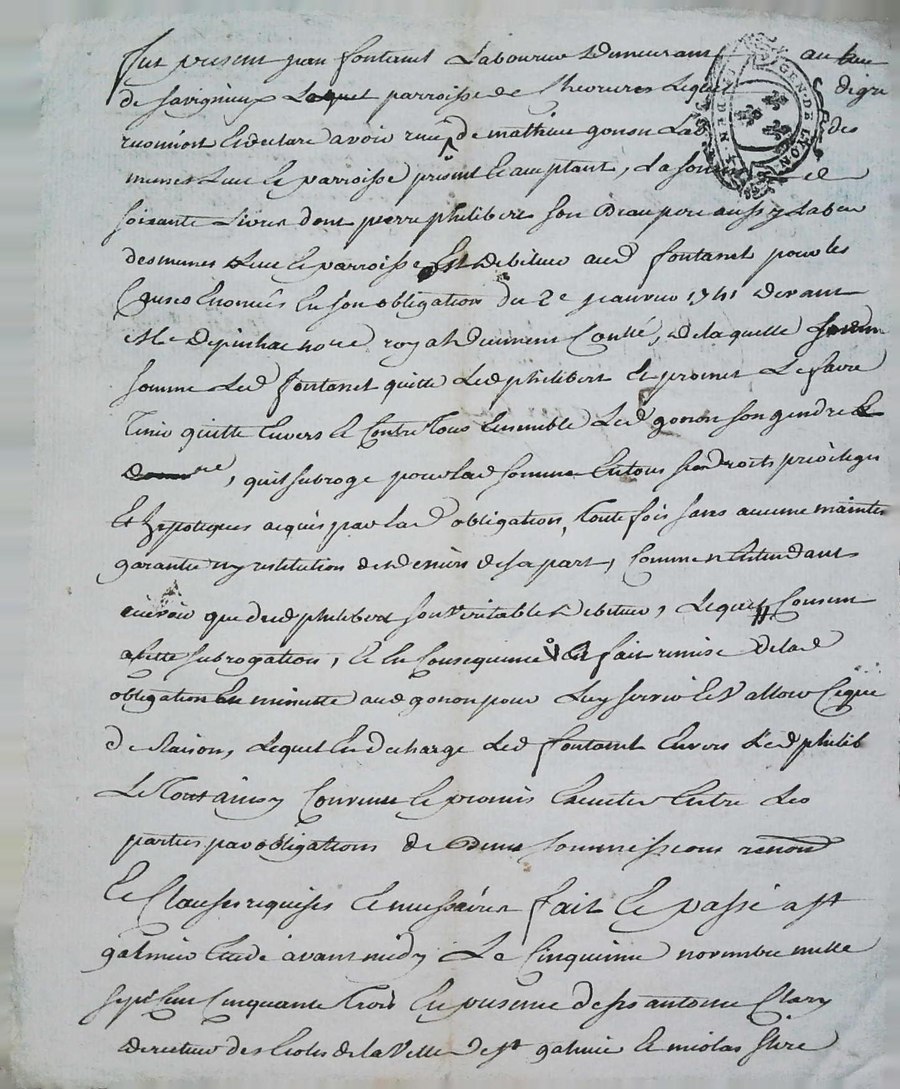 Fut present jean fontanel Laboureur Demeurant au lieu
de Savignieux Laquel parroisse de Chevrieres Lequel de gré
reconnoit et declare avoir receu de mathieu gonon Lab des
mesmes Lieu et parroisse present et acceptant, La somme de
soixante Livres dont pierre philibert son Beaupere aussy Labeur
desmemes Lieu et parroisse Est debiteur aud fontanel pour les
Causes Enoncées En son obligation du 2e janvier 1741 devant
Me Depinhac nore royal duement Conllé, de laquelle
somme Led fontanel quitte Led philibert et promet Le faire
Tenir quitte Envers et Contre Tous Ensemble Led gonon son gendre
, qu'il subroge pour lad somme En tous ses droits privileges
Et hypoteques acquis par Lad obligation, Toute fois sans aucune mainten
garantie ny restitution de deniers de sa part, Comme
que dud philibert son Veritable debiteur, Lequel Consent
a Cette subrogation, Et En Consequence Il fait remise de lad
obligation En minutte aud gonon pour Luy servir Et Valloir Ceque
de Raison, Lequel En decharge Led fontanel Envers Led philib
Le Tout ainsy Convenu et promis Executer Entre Les
parties par obligations de Biens soummissions renond
Et Clauses requises Et necessaires fait Et passé a st
galmier Etude avant midy Le Cinquieme novembre mille
sept Cent Cinquante Trois En presence de srs antoine Clary
directeur des Ecoles de la Ville de st galmier Et nicolas
GEN. DE LYON